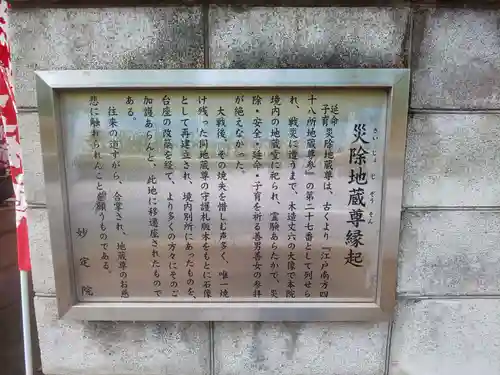 災除地蔵尊縁起
さいじょ じぞうそん
延命
子育災除地蔵尊は、古くより『江戸南方四
十八所地蔵尊参』の第二十七番として列せら
れ、戦災に遭うまで、木造丈六の大像で本院
境内の地蔵堂に祀られ、霊験あらたかで、災
除・安全・延命・子育を祈る善男善女の参拝
が絶えなかった。
大戦後、その焼失を惜しむ声多く、唯一焼
け残った同地蔵尊の守護札版木をもとに石像
として再建立され、境内別所にあったものを、
台座の改築を経て、より多くの方々にそのご
加護あらんと、此地に移遷座されたもので
ある。
往来の道すがら、合掌され、地蔵尊のお慈
悲に触れられんこと を願うものである。
妙定院